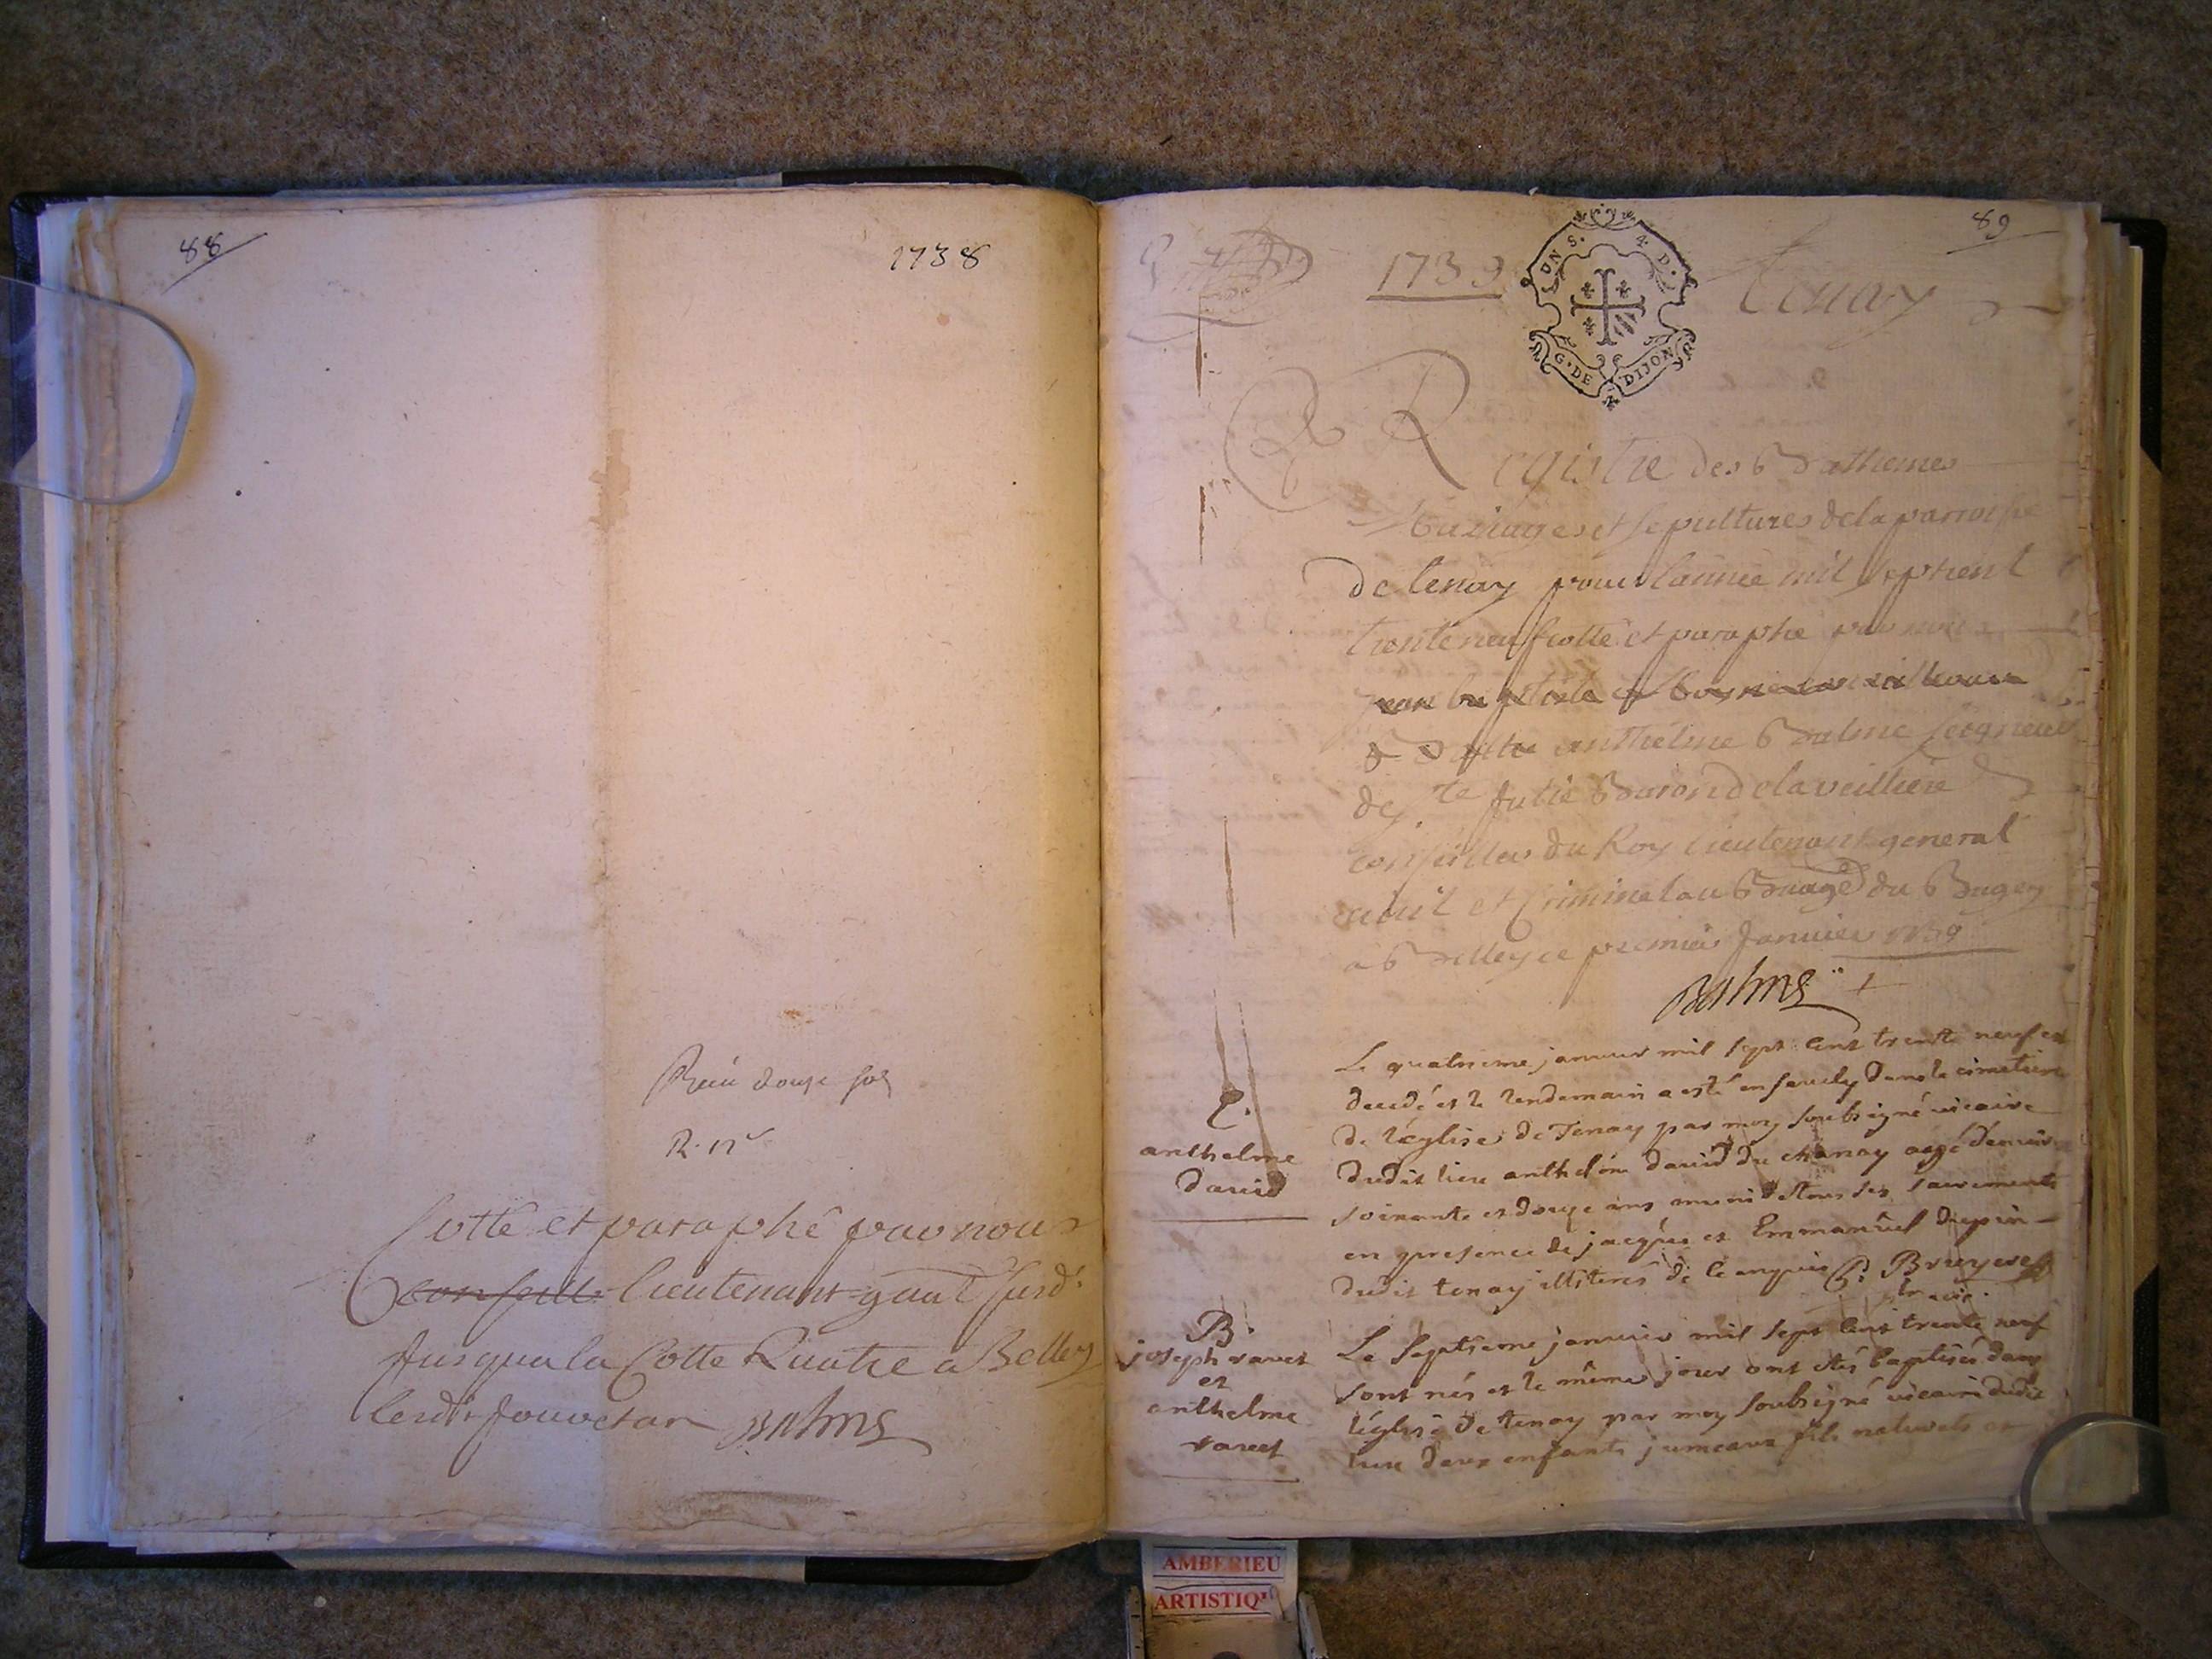 88
1738
Receu douze sols
R. 12 s
Cotté et paraphé par nous
Conseille lieutenant gnal susdt
Jusqua la Cotte Quatre a Belley
lesdts Jour et an Balme
89
1739
UN S. 4 D.
G. DE DIJON
Tenay
Registre des Bathemes
Mariages et sepultures de la parroisse
de tenay pour lannée mil sept cent
trente neuf cotté et paraphé par nous
Jean baptiste
anthelme Balme seigneur
de Ste Julie Baron de la veilliere
Conseiller du Roy lieutenant general
civil et Criminel au Bailliage du Bugey
a Belley ce premier Janvier 1739
Balme
Le quatrieme janvier mil sept cent trente neuf est
decedé et le lendemain a esté ensevely dans le cimetiere
de l'église de Tenay par moy soubsigné vicaire
dudit lieu anthelme david du chanay agé d'environ
soixante et douze ans muni de tous ses sacrements
en presence de jacques et Emmanuel dupin
dudit tenay illiterés de ce enquis Bruyeres
vic.
S.
anthelme
david
Le septieme janvier mil sept cent trente neuf
sont nés et le même jour ont étés baptisés dans
l'église de tenay par moy soubsigné vicaire dudit
lieu deux enfants jumeaux fils naturels et
B.
joseph ravet
et
anthelme
ravet
AMBERIEU
ARTISTIQ